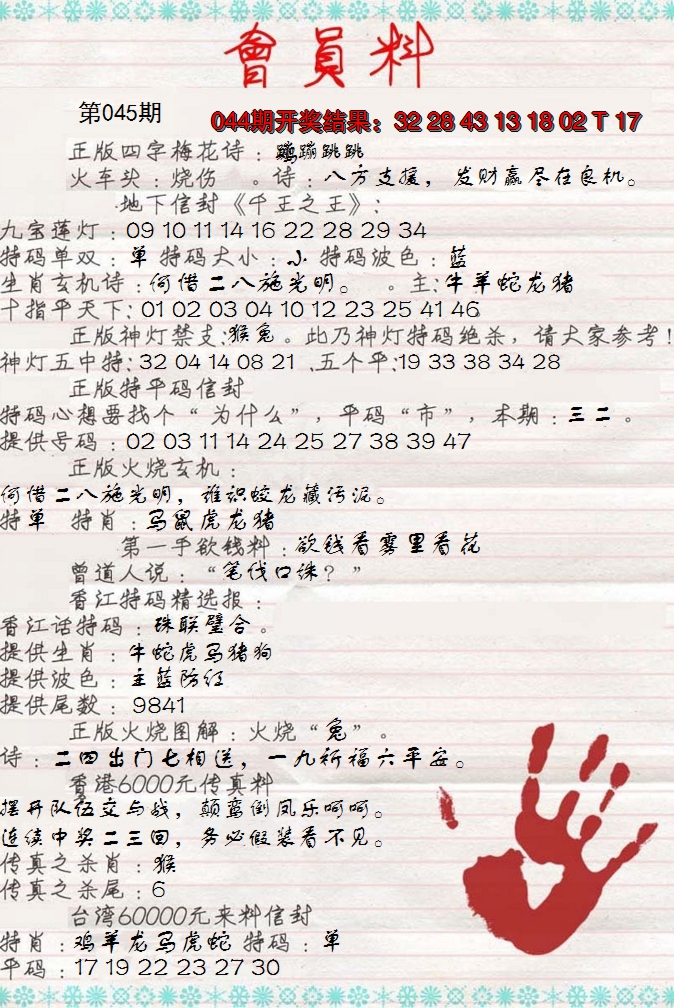 會員料
第045期
044期开奖结果：32 28 43 13 18 02 T 17
正版四字梅花诗：蹦蹦跳跳
火车头：烧伤 。诗：八方支援，发财赢尽在良机。
地下信封《千王之王》：
九宝莲灯：09 10 11 14 16 22 28 29 34
特码单双：单 特码大小：小 特码波色：蓝
生肖玄机诗：何借二八施光明。 。主：牛羊蛇龙猪
十指平天下：01 02 03 04 10 12 23 25 41 46
正版神灯禁支：猴兔。此乃神灯特码绝杀，请大家参考！
神灯五中特：32 04 14 08 21 、五个平：19 33 38 34 28
正版特平码信封
特码心想要找个“为什么”，平码“市”，本期：三二。
提供号码：02 03 11 14 24 25 27 38 39 47
正版火烧玄机：
何借二八施光明，谁识蛟龙藏污泥。
特单 特肖：马鼠虎龙猪
第一手欲钱料：欲钱看雾里看花
曾道人说：“笔伐口诛？”
香江特码精选报：
香江话特码：珠联璧合。
提供生肖：牛蛇虎马猪狗
提供波色：主蓝防红
提供尾数：9841
正版火烧图解：火烧“兔”。
诗：二四出门七相送，一九祈福六平安。
香港6000元传真料
摆开队伍交与战，颠鸾倒凤乐呵呵。
连续中奖二三回，务必假装看不见。
传真之杀肖：猴
传真之杀尾：6
台湾60000元来料信封
特肖：鸡羊龙马虎蛇 特码：单
平码：17 19 22 23 27 30